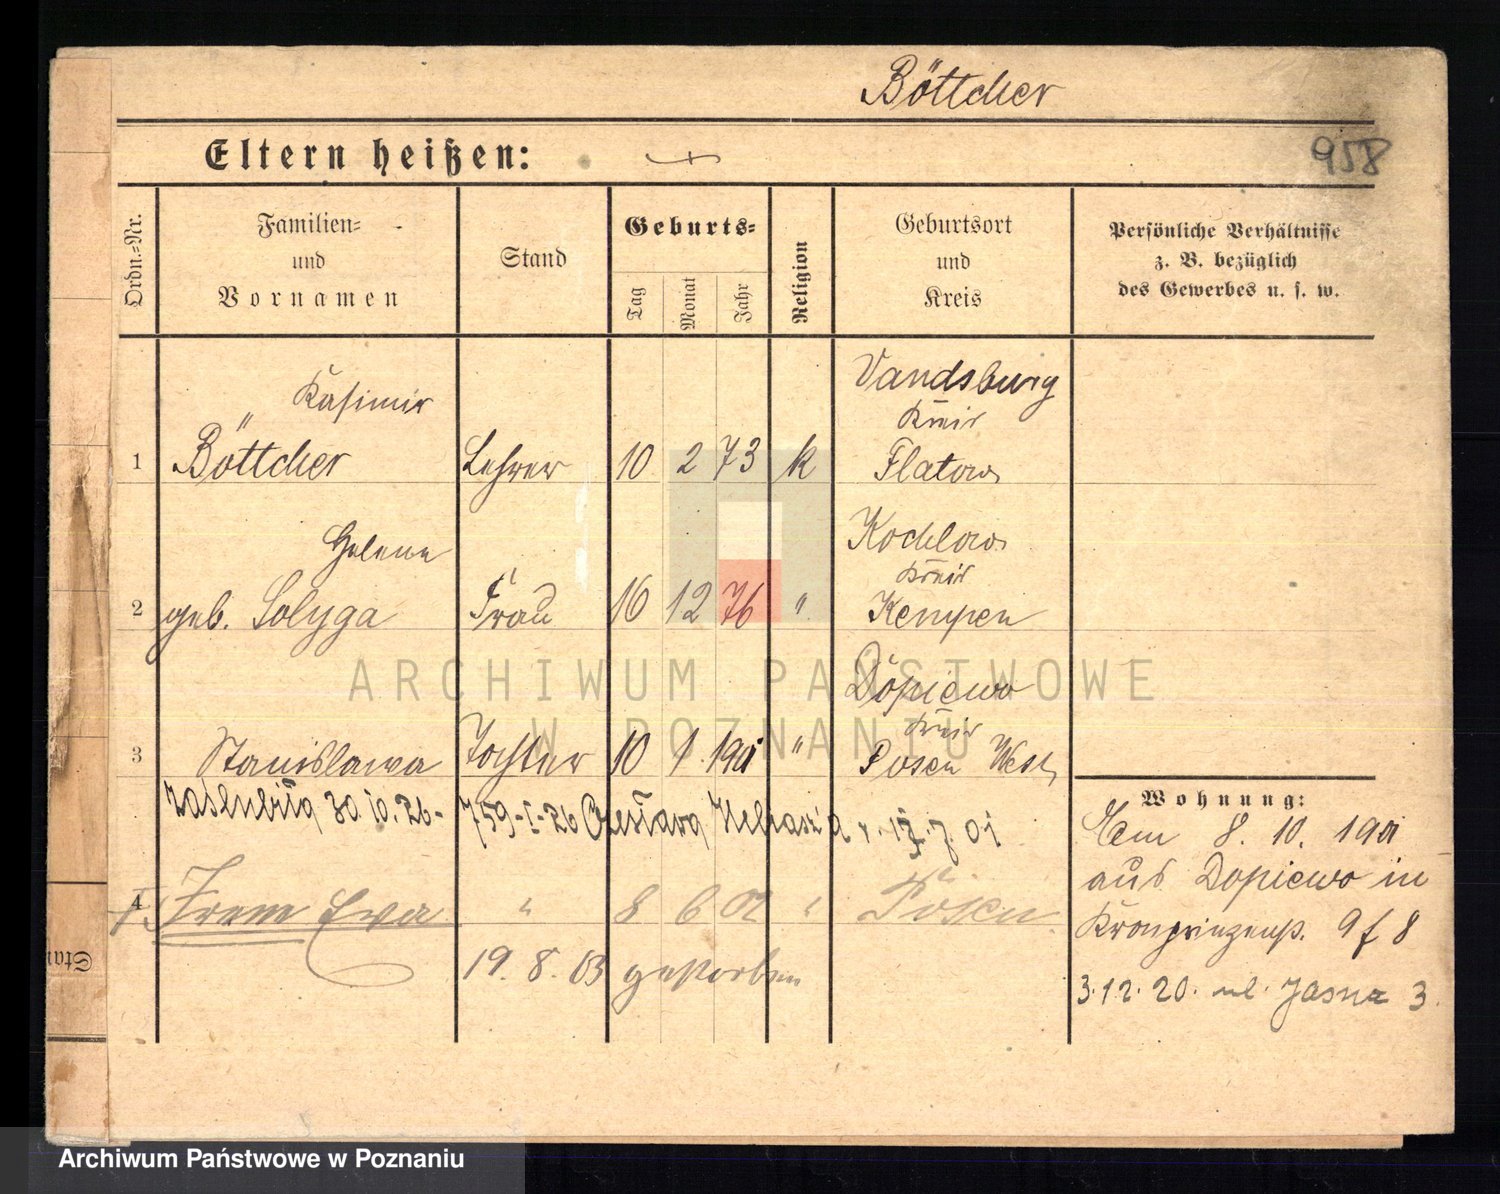 Böttcher
Eltern heißen:
958
Ordn.-Nr.
Familien-
und
Vornamen
Stand
Geburts-
Tag
Monat
Jahr
Religion
Geburtsort
und
Kreis
Persönliche Verhältnisse
z. B. bezüglich
des Gewerbes u. s. w.
Kasimir
1 Böttcher Lehrer 10 2 73 k
Vandsburg
Kreis
Flatow
Helene
2 geb. Solyga Frau 16 12 76 "
Kochlow
Kreis
Kempen
Dopiewo
Kreis
3 Stanislawa Tochter 10 1 1901 " Posen West
zaślubiła 30.10.26 - 759-I-26 Czesława
4 Irene Eva " 8 6 02 " Posen
19. 8. 03 gestorben
Wohnung:
8. 10. 1901
aus Dopiewo in
Kronprinzenstr. 9 f 8
3.12.20. ul. Jasna 3
Stan
ARCHIWUM PAŃSTWOWE
W POZNANIU
Archiwum Państwowe w Poznaniu